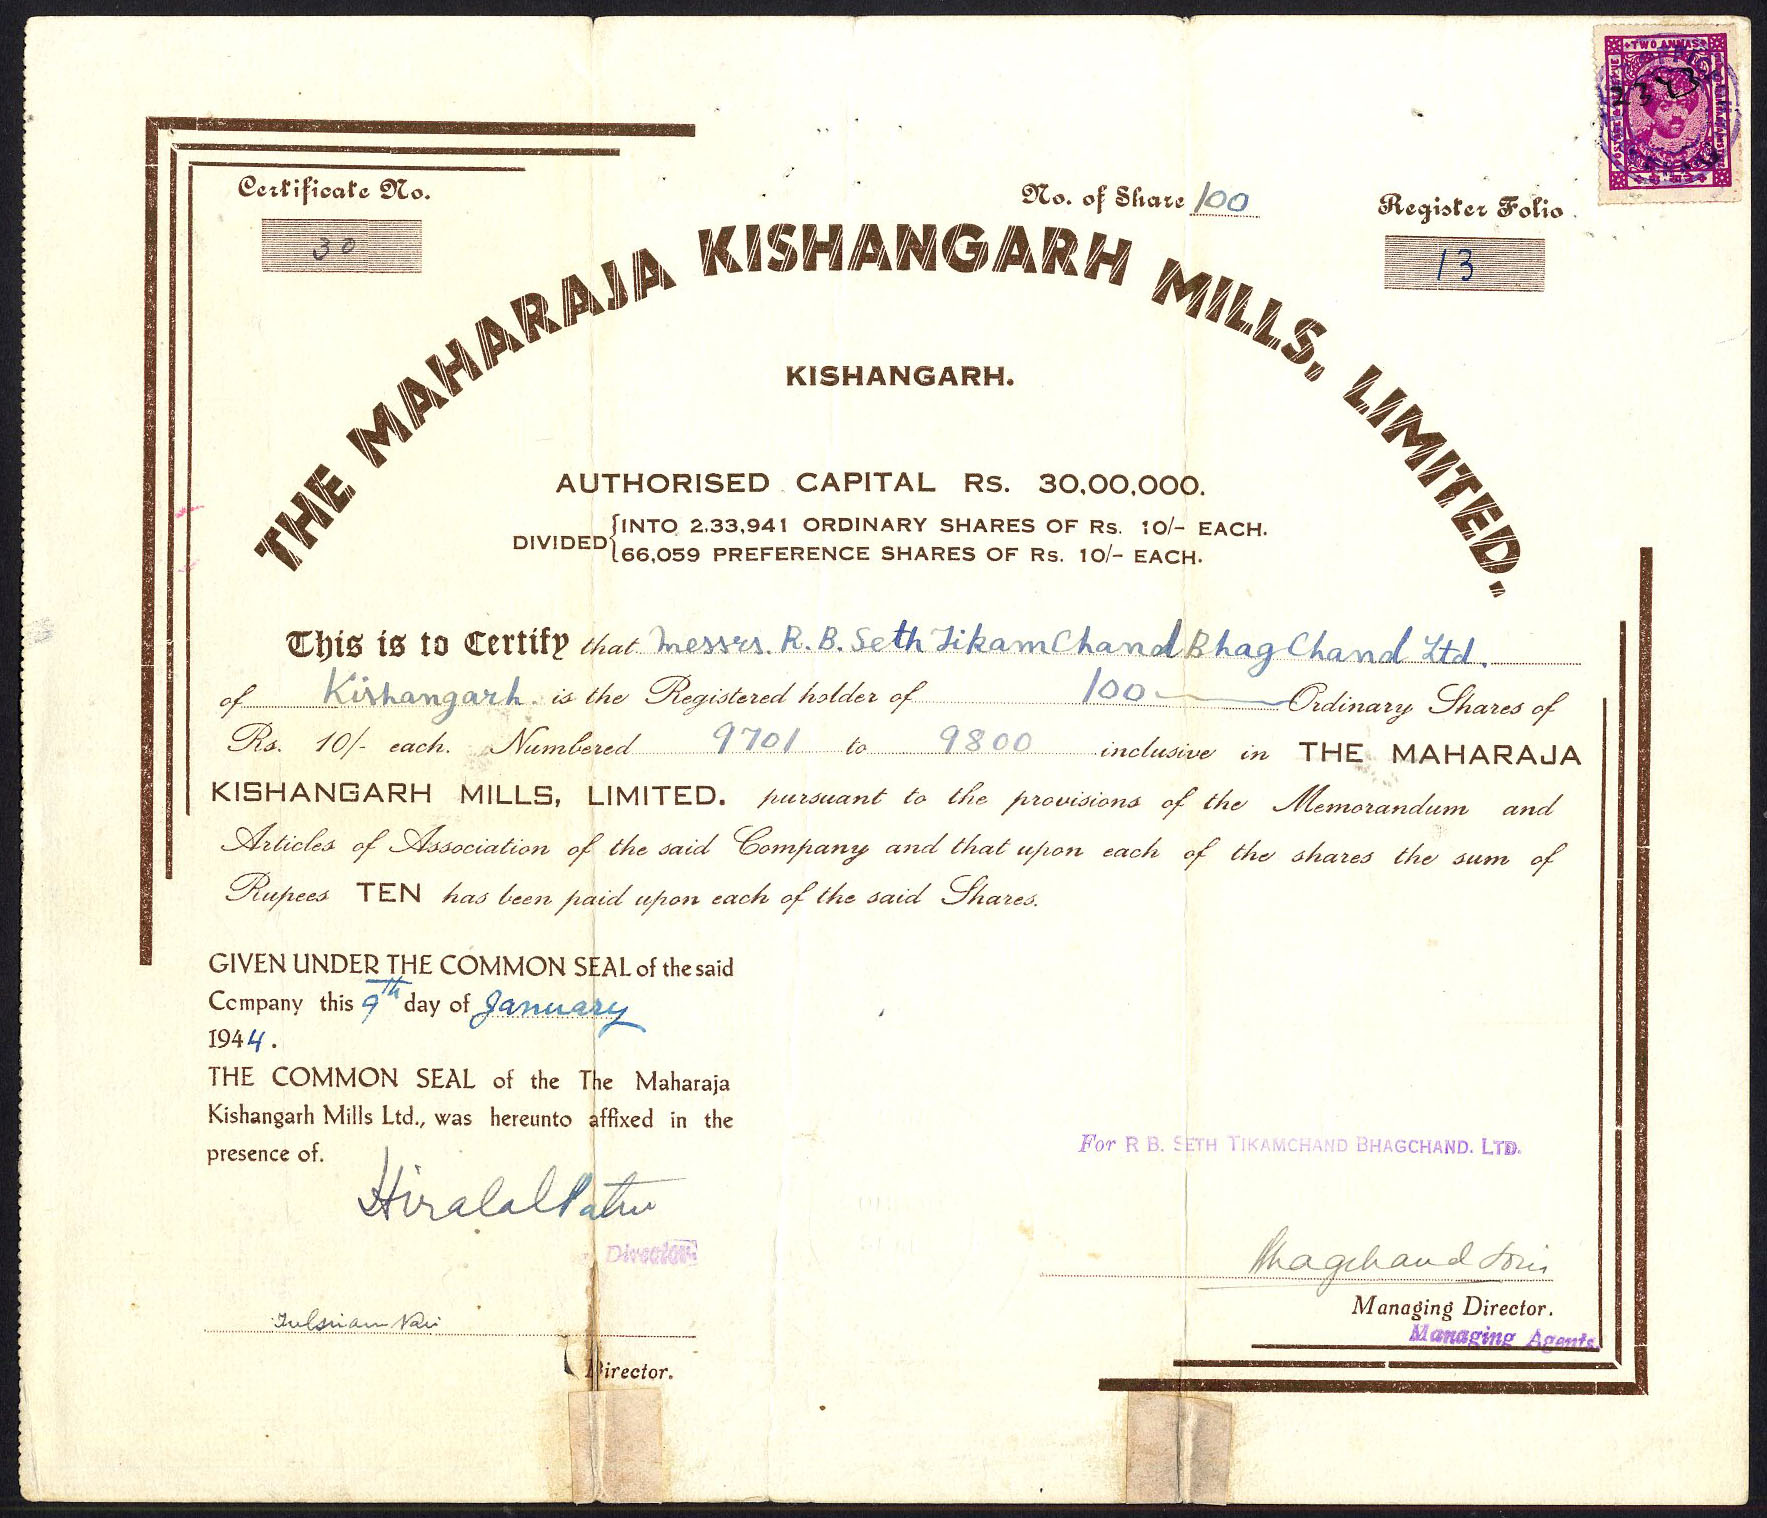 TWO ANNAS
Certificate No.
No. of Share 100
Register Folio
30
13
THE MAHARAJA KISHANGARH MILLS, LIMITED.
KISHANGARH.
AUTHORISED CAPITAL Rs. 30,00,000.
DIVIDED { INTO 2,33,941 ORDINARY SHARES OF Rs. 10/- EACH.
66,059 PREFERENCE SHARES OF Rs. 10/- EACH.
This is to Certify that Messrs. R. B. Seth Tikam Chand Bhag Chand Ltd.
of Kishangarh. is the Registered holder of 100 Ordinary Shares of
Rs. 10/- each. Numbered 9701 to 9800 inclusive in THE MAHARAJA
KISHANGARH MILLS, LIMITED. pursuant to the provisions of the Memorandum and
Articles of Association of the said Company and that upon each of the shares the sum of
Rupees TEN has been paid upon each of the said Shares.
GIVEN UNDER THE COMMON SEAL of the said
Company this 9th day of January
1944.
THE COMMON SEAL of the The Maharaja
Kishangarh Mills Ltd., was hereunto affixed in the
presence of.
For R B. SETH TIKAMCHAND BHAGCHAND. LTD.
Hiralal
Director
Bhagchand Soni
Managing Director.
Managing Agents
Director.